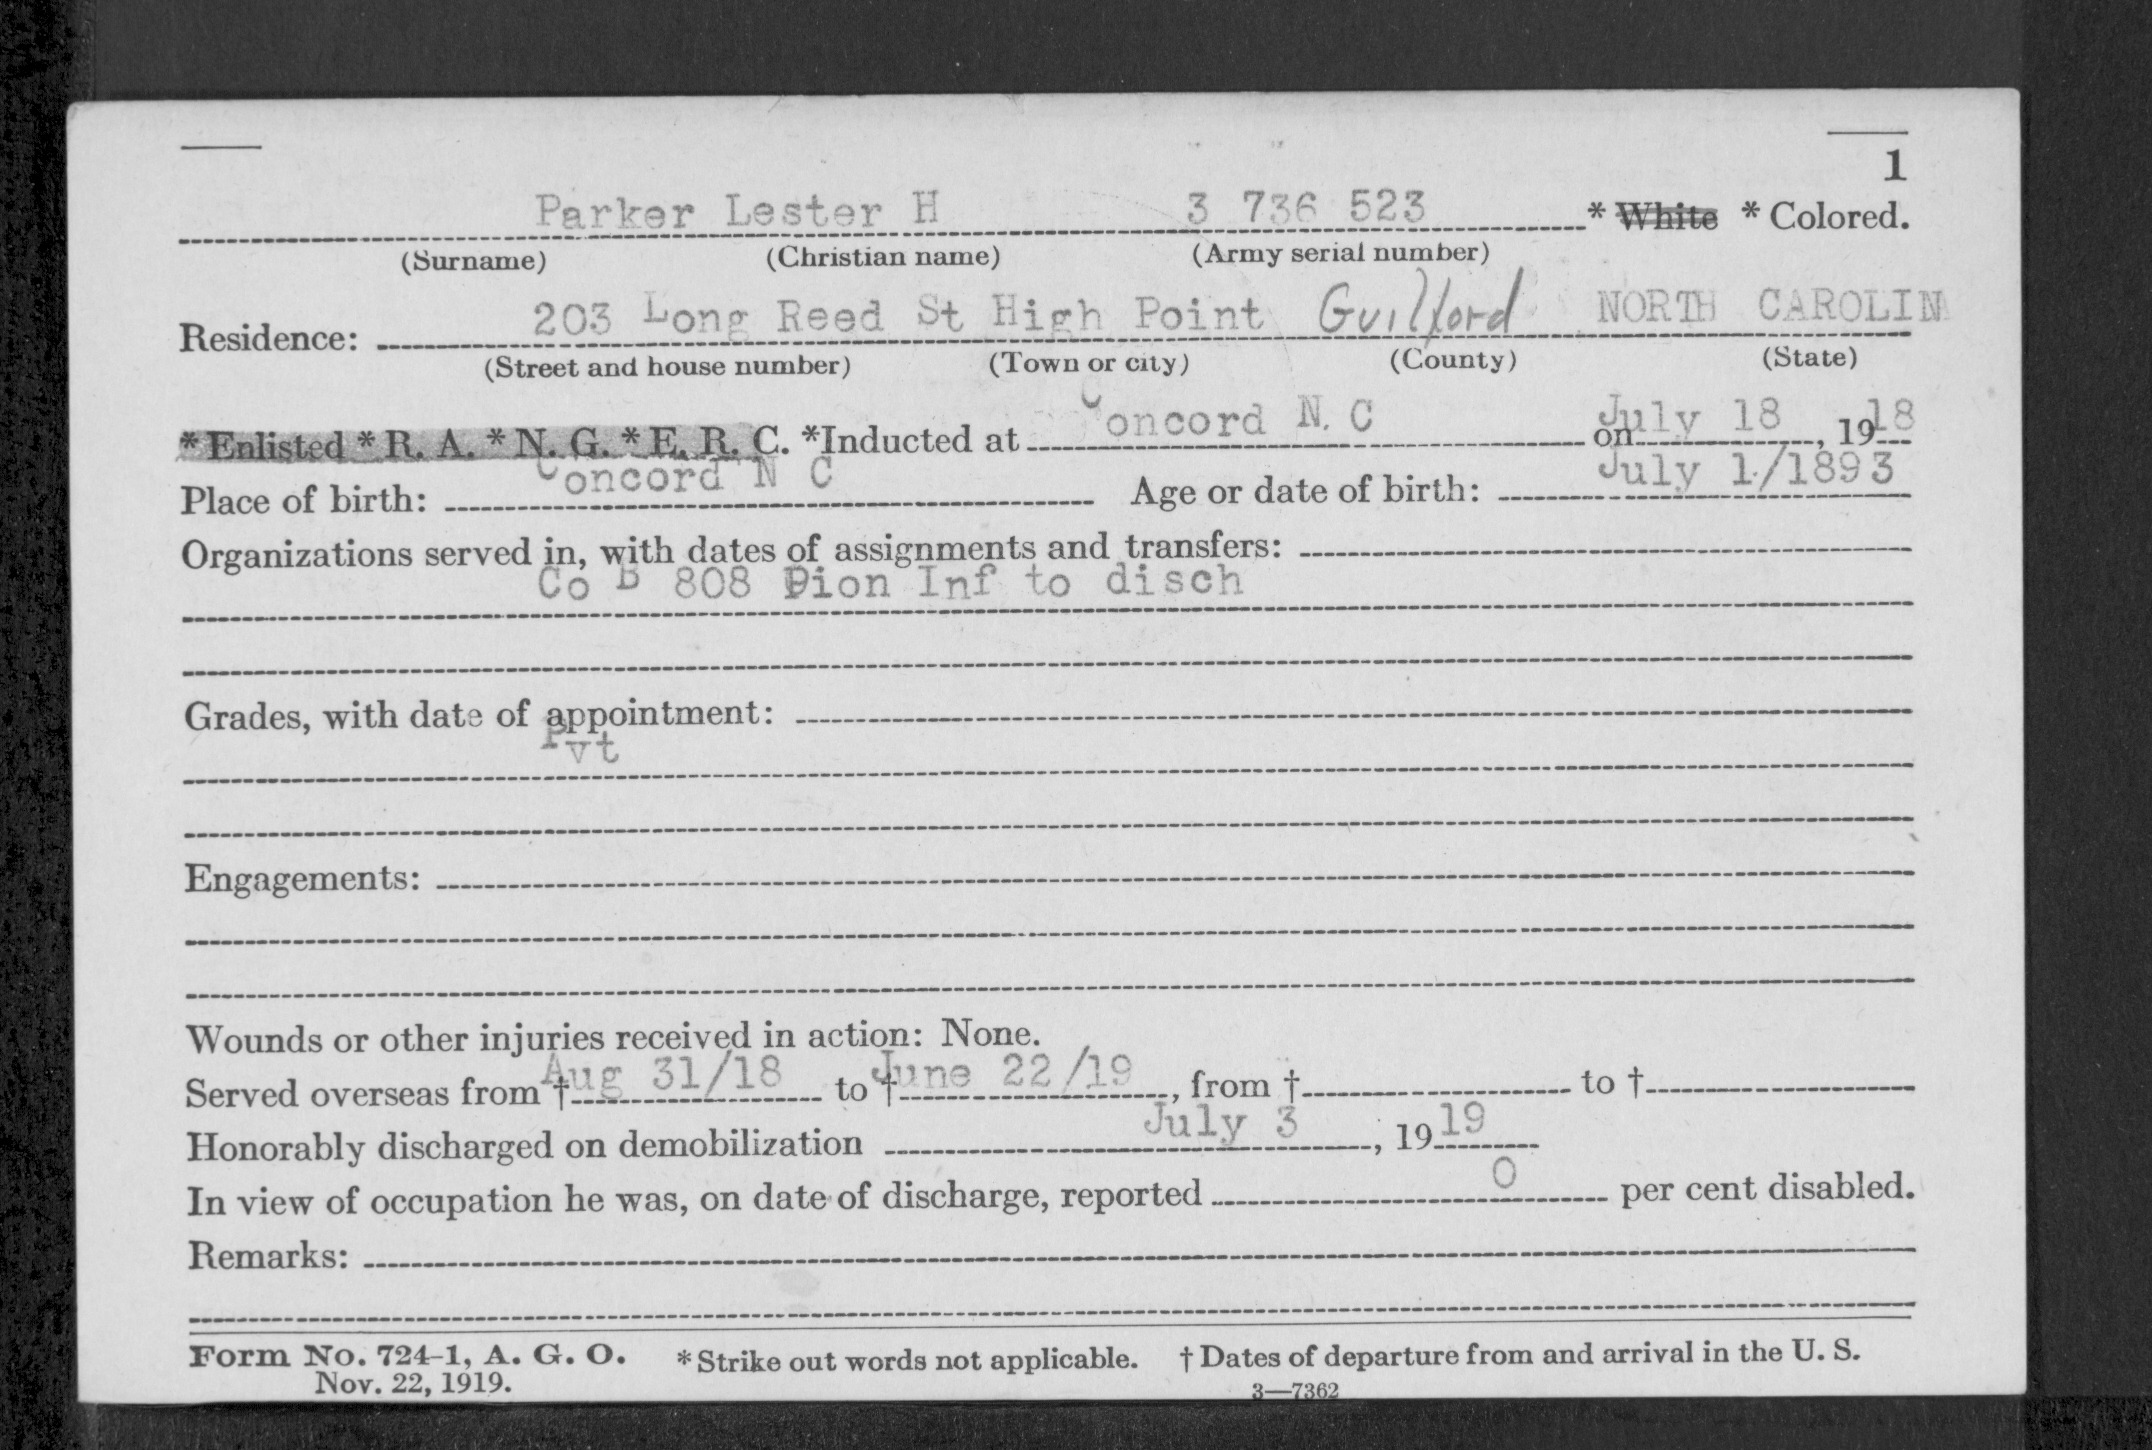 1
Parker Lester H 3 736 523 * White * Colored.
(Surname) (Christian name) (Army serial number)
Residence: 203 Long Reed St High Point Guilford NORTH CAROLIN
(Street and house number) (Town or city) (County) (State)
* Enlisted * R. A. * N. G. * E. R. C. *Inducted at Concord N. C on July 18, 1918
Place of birth: Concord N C Age or date of birth: July 1/1893
Organizations served in, with dates of assignments and transfers:
Co B 808 Pion Inf to disch
Grades, with date of appointment:
Pvt
Engagements:
Wounds or other injuries received in action: None.
Served overseas from † Aug 31/18 to † June 22/19, from † to †
Honorably discharged on demobilization July 3, 1919
In view of occupation he was, on date of discharge, reported 0 per cent disabled.
Remarks:
Form No. 724-1, A. G. O. * Strike out words not applicable. † Dates of departure from and arrival in the U. S.
Nov. 22, 1919. 3—7362